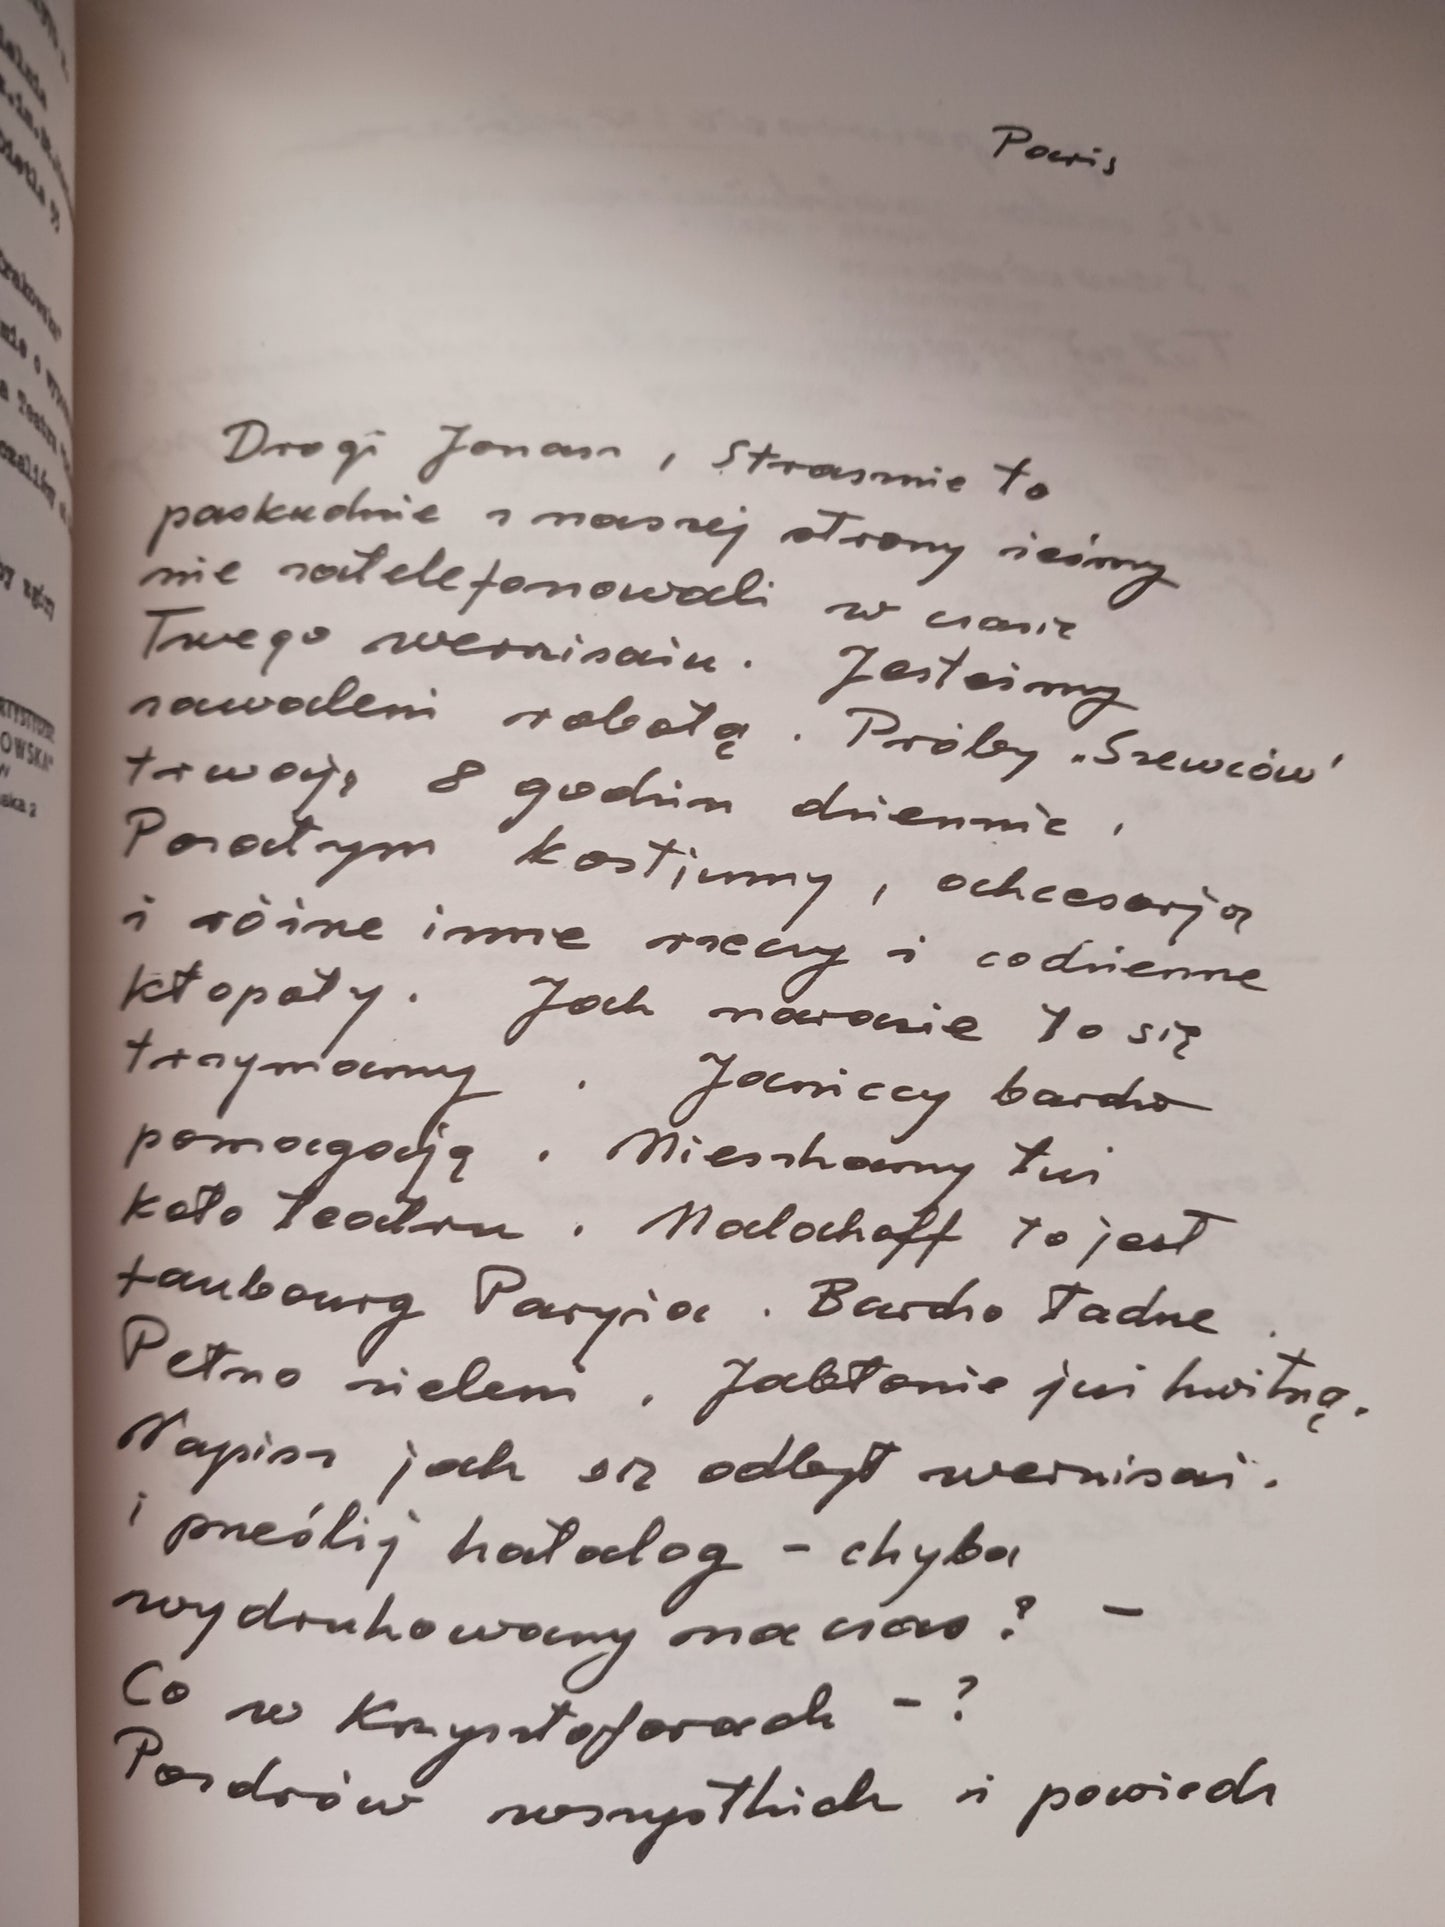 Paris
Drogi Jonasz, Strasznie to
paskudnie z naszej strony żeśmy
nie zatelefonowali w czasie
Twego wernisażu. Jesteśmy
zawaleni robotą. Próby „Szewców"
trwają 8 godzin dziennie,
Pozatym kostjumy, akcesorja
i różne inne rzeczy i codzienne
kłopoty. Jak narazie to się
trzymamy. Janiccy bardzo
pomagają. Mieszkamy tuż
koło teatru. Malakoff to jest
faubourg Paryża. Bardzo ładne.
Pełno zieleni. Jabłonie już kwitną.
Napisz jak się odbył wernisaż.
i prześlij katalog - chyba
wydrukowany na czas? -
Co w Krzysztoforach - ?
Pozdrów wszystkich i powiedz